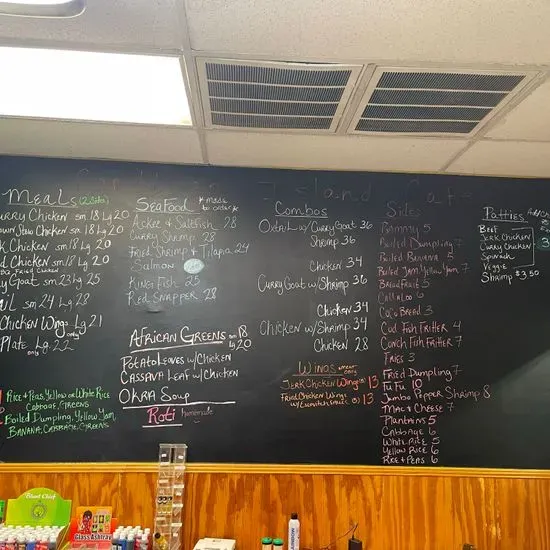 Meals (2 Sides)
urry Chicken sm.18 Lg 20
own Stew Chicken sm 18 Lg 20
k Chicken sm.18 Lg 20
d Chicken sm 18 Lg 20
y Goat sm 23 Lg 25
il sm 24 Lg 28
Chicken Wings Lg 21
Plate Lg. 22
only
Rice + Peas, Yellow or White Rice
Cabbage, Greens
Boiled Dumpling, Yellow Yam,
Banana, Cabbage, Greens
Seafood * Made to order *
Ackee + Saltfish 28
Curry Shrimp 28
Fried Shrimp + Tilapia 24
Salmon
King Fish 25
Red Snapper 28
African Greens sm 18 Lg 20
Potato Leaves w/Chicken
Cassava Leaf w/Chicken
Okra Soup
Roti homemade
Combos
Oxtail w/Curry Goat 36
Shrimp 36
Chicken 34
Curry Goat w/Shrimp 36
Chicken 34
Chicken w/Shrimp 34
Chicken 28
Wings
Jerk Chicken Wings 13
Fried Chicken Wings 13
Sides
Bammy 5
Boiled Dumpling 7
Boiled Banana 5
Boiled Yam, Yellow Yam 7
Breadfruit 5
Callaloo 6
Coco Bread 3
Cod Fish Fritter 4
Conch Fish Fritter 7
Fries 3
Fried Dumpling 7
Fu Fu 10
Jumbo Pepper Shrimp 8
Mac + Cheese 7
Plantains 5
Cabbage 6
White Rice 5
Yellow Rice 6
Rice + Peas 6
Patties
Beef
Jerk Chicken
Curry Chicken
Spinach
Veggie
Shrimp $3.50
Blunt Chief
Class Ashtray